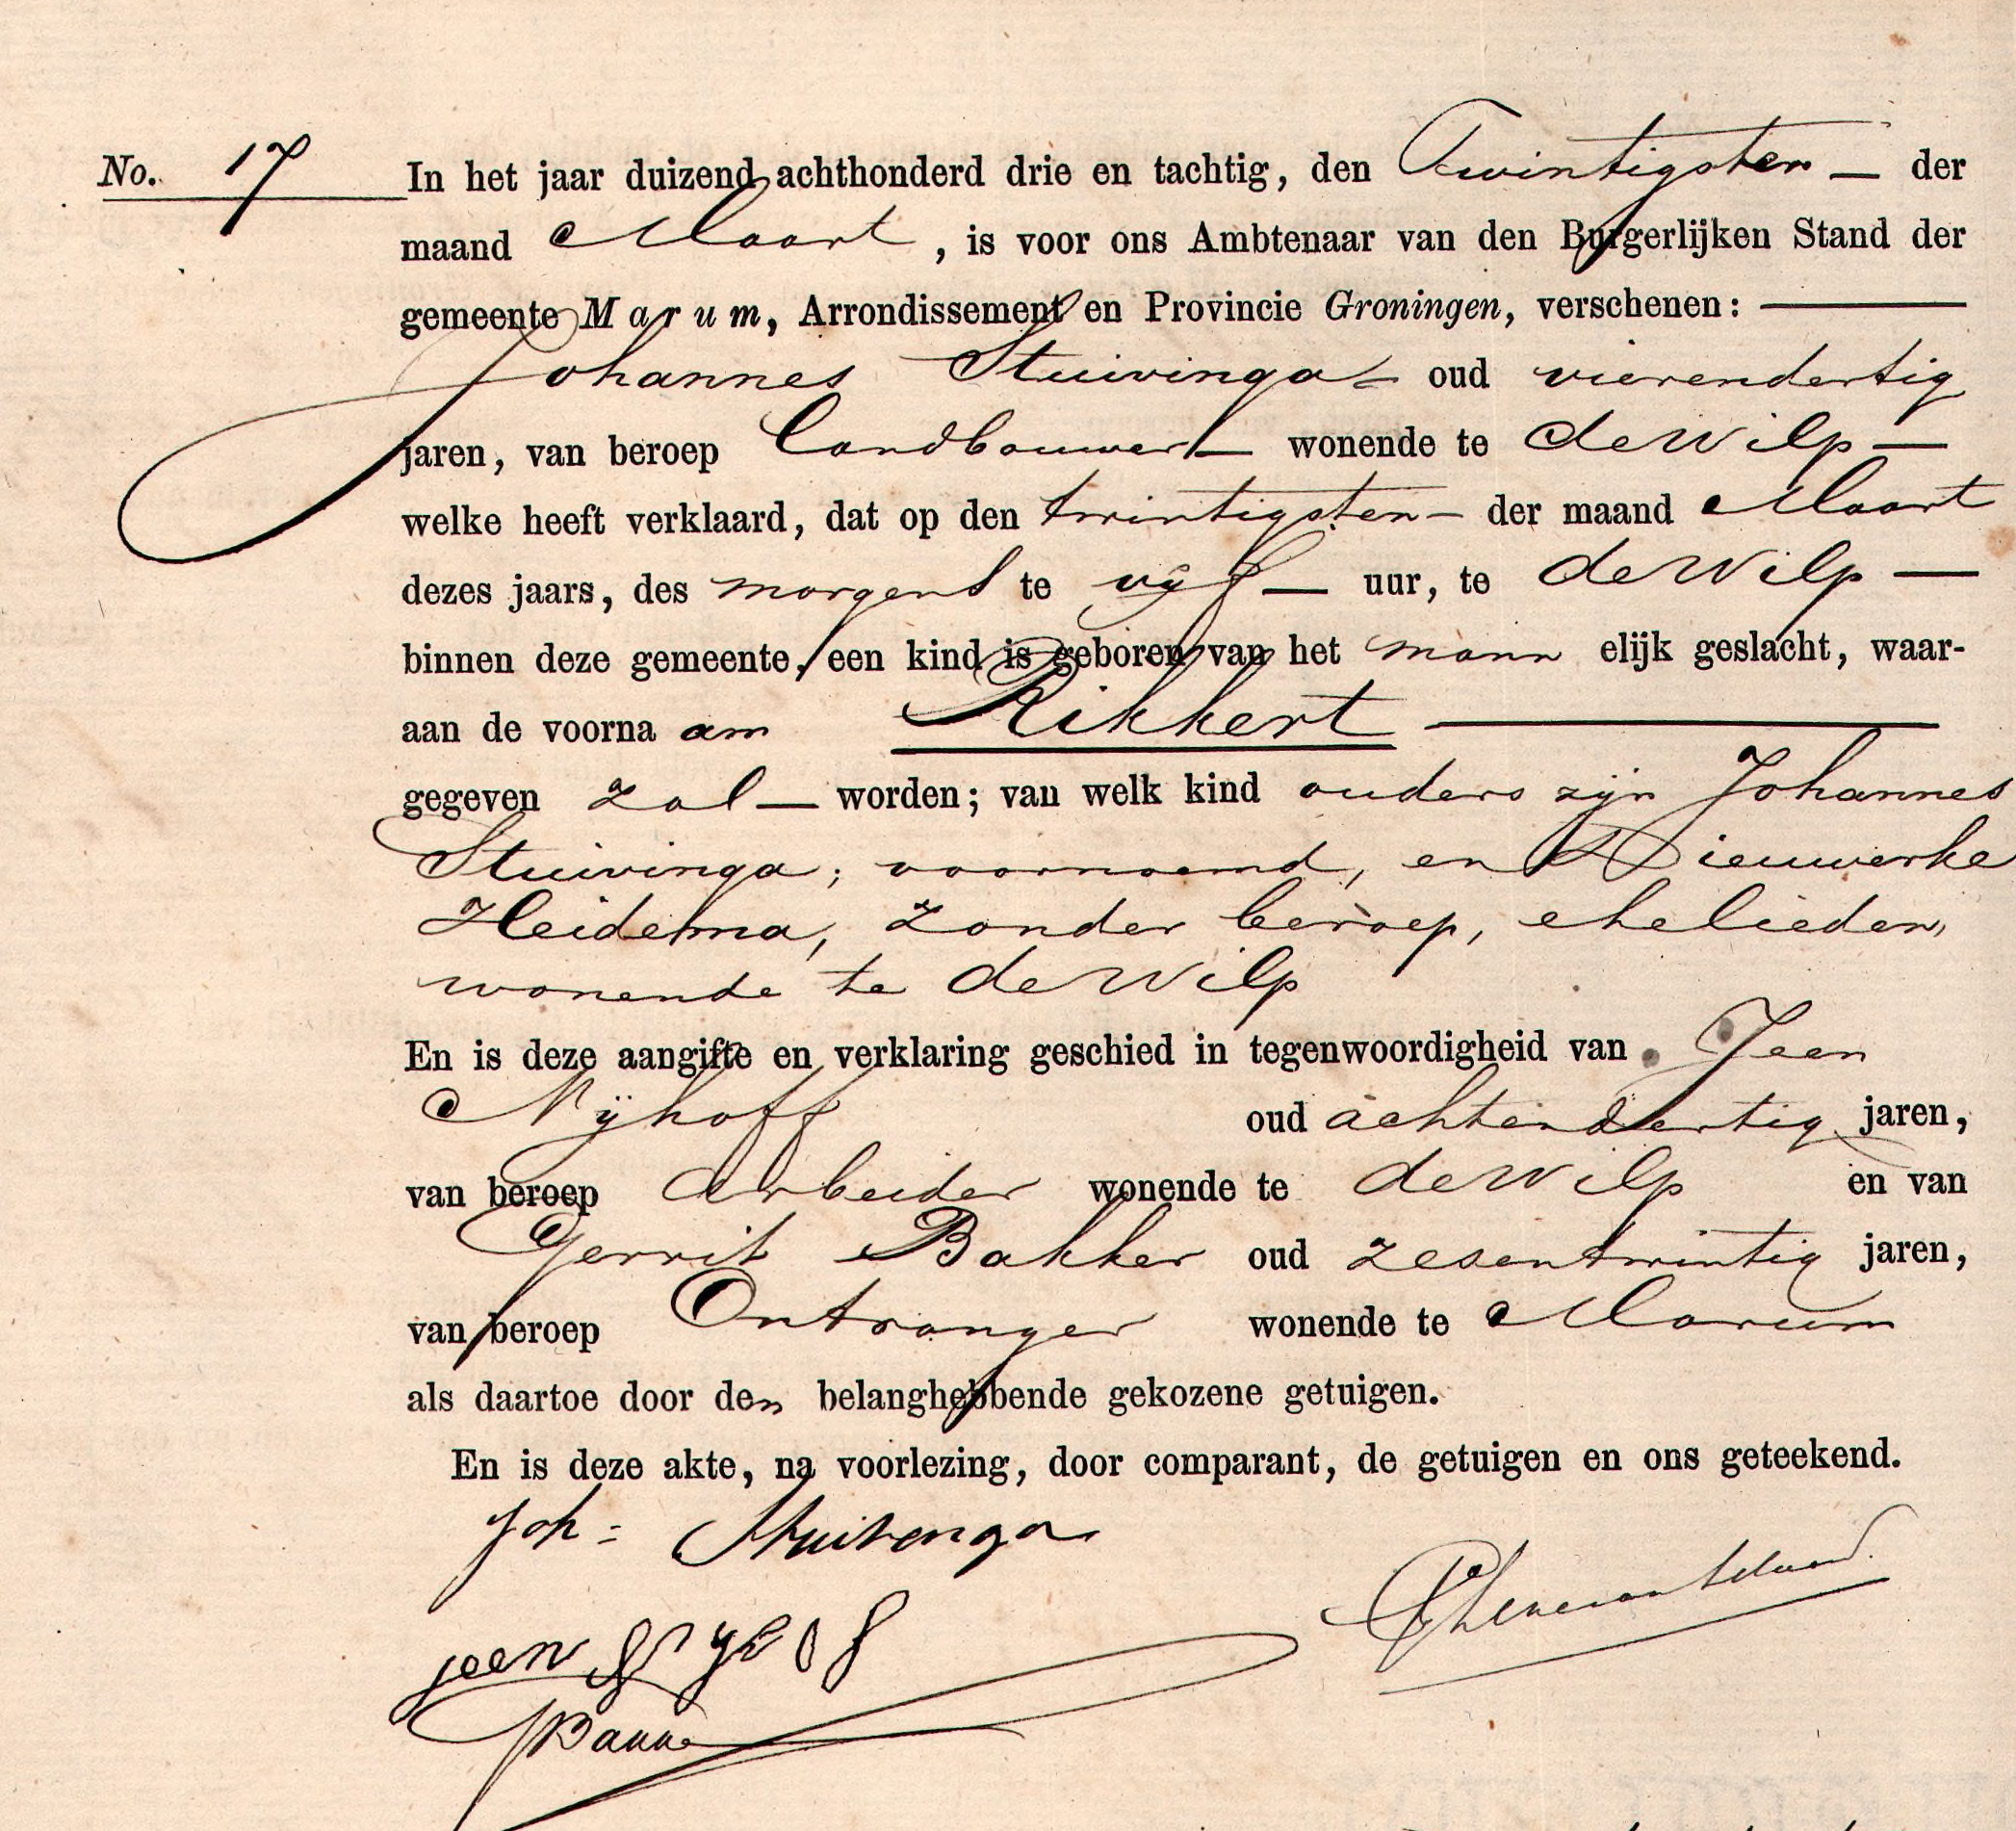 No. 17
In het jaar duizend achthonderd drie en tachtig, den Twintigsten — der
maand Maart, is voor ons Ambtenaar van den Burgerlijken Stand der
gemeente Marum, Arrondissement en Provincie Groningen, verschenen: —
Johannes Stuivinga — oud vierendertig
jaren, van beroep Landbouwer — wonende te de Wilp —
welke heeft verklaard, dat op den twintigsten — der maand Maart
dezes jaars, des morgens te vijf — uur, te de Wilp —
binnen deze gemeente, een kind is geboren van het mann elijk geslacht, waar-
aan de voorna am Rikkert —
gegeven zal — worden; van welk kind ouders zijn Johannes
Stuivinga, voornoemd, en Dieuwerke
Heidema, zonder beroep, ehelieden,
wonende te de Wilp
En is deze aangifte en verklaring geschied in tegenwoordigheid van Jeen
Nijhoff oud achtendertig jaren,
van beroep Arbeider wonende te de Wilp en van
Gerrit Bakker oud zesentwintig jaren,
van beroep Ontvanger wonende te Marum
als daartoe door den belanghebbende gekozene getuigen.
En is deze akte, na voorlezing, door comparant, de getuigen en ons geteekend.
Joh = Stuivenga
jeen